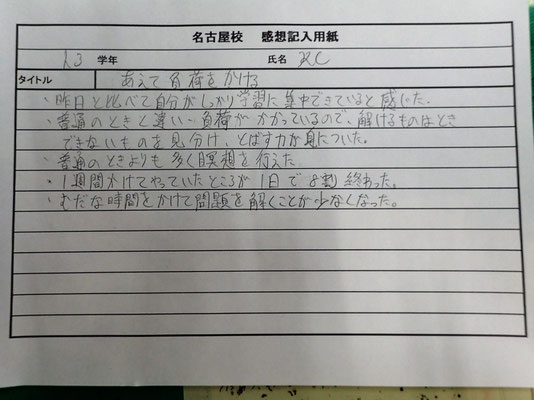 名古屋校 感想記入用紙
学年 氏名
タイトル あえて負荷をかける
・昨日と比べて自分がしっかり学習に集中できていると感じた。
・普通のときと違い、負荷がかかっているので、解けるものはとき
できないものを見分け、とばす力が身についた。
・普通のときよりも多く瞑想を行えた
・1週間かけてやっていたところが1日で8割終わった。
・むだな時間をかけて問題を解くことが少なくなった。